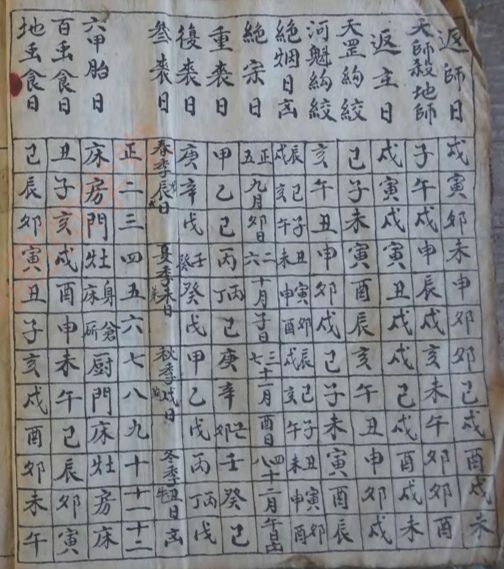 返師日 戌 寅 卯 未 申 卯 卯 己 戌 酉 戌 未
天師殺地師 子 午 戌 申 辰 戌 亥 未 戌 酉 卯 酉
返主日 戌 寅 戌 寅 丑 戌 子 己 丑 酉 未
天罡絢絞 己 子 未 寅 酉 辰 亥 午 丑 申 卯 戌
河魁絢絞 亥 午 丑 申 卯 戌 己 子 未 寅 酉 辰
絶烟日凶 辰戌 己亥 子午 丑未 寅申 卯酉 辰戌 己亥 子午 丑未 寅申 卯酉
絶宗日 正五九月卯日 二六十月子日 三七十一月酉日 四八十二月午日凶
重喪日 甲 乙 己 丙 丁 己 庚 辛 己 壬 癸 己
復喪日 庚 辛 戊 壬 癸 戊 甲 乙 戊 丙 丁 戊
叁喪日 春季辰日 夏季未日 秋季戌日 冬季丑日凶
正 二 三 四 五 六 七 八 九 十 十一 十二
六甲胎日 床 房 門 灶 身床 倉 厨 門 床 灶 房 床
百虫食日 丑 子 亥 戌 酉 申 未 午 己 辰 卯 寅
地虫食日 己 辰 卯 寅 丑 子 亥 戌 酉 卯 未 午